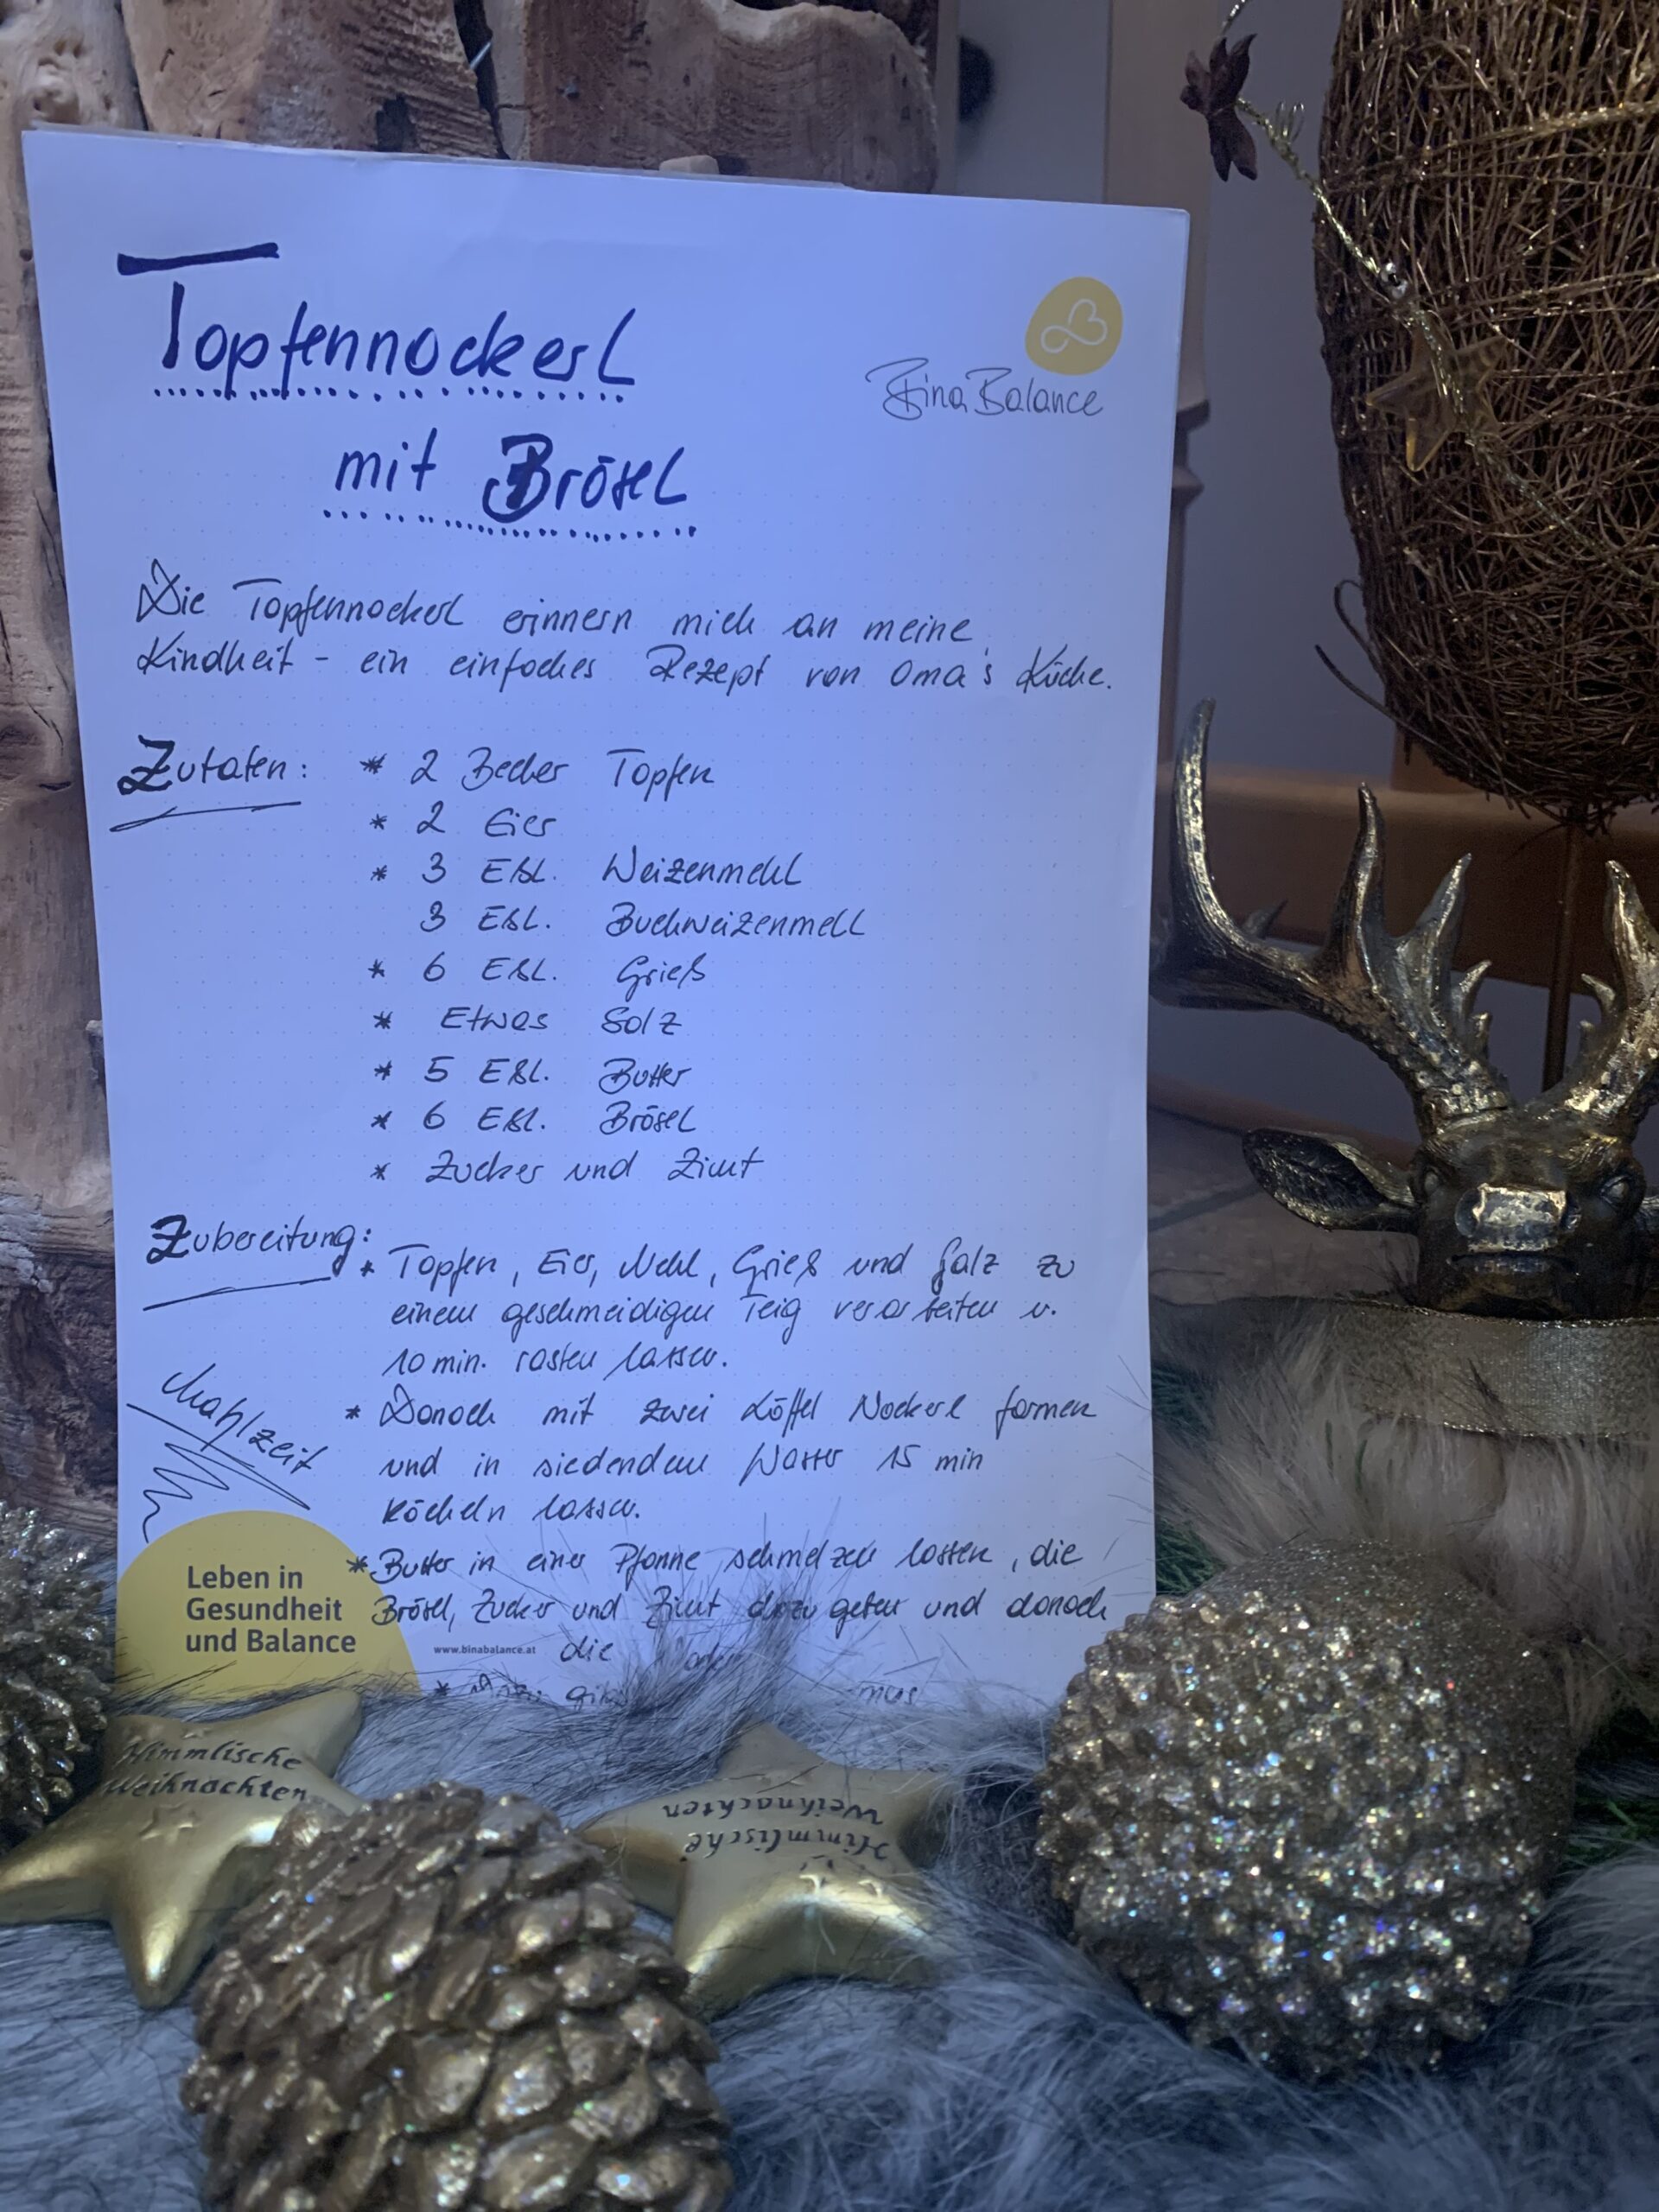 Topfennockerl
mit Brösel
Bina Balance
Die Topfennockerl erinnern mich an meine
Kindheit - ein einfaches Rezept von Oma's Küche.
Zutaten:
* 2 Becher Topfen
* 2 Eier
* 3 Eßl. Weizenmehl
3 Eßl. Buchweizenmehl
* 6 Eßl. Grieß
* Etwas Salz
* 5 Eßl. Butter
* 6 Eßl. Brösel
* Zucker und Zimt
Zubereitung:
* Topfen, Eier, Mehl, Grieß und Salz zu
einem geschmeidigen Teig verarbeiten u.
10 min. rasten lassen.
* Danach mit zwei Löffel Nockerl formen
und in siedendem Wasser 15 min
köcheln lassen.
* Butter in einer Pfanne schmelzen lassen, die
Brösel, Zucker und Zimt dazu geben und danach
die
Mahlzeit
Leben in
Gesundheit
und Balance
www.binabalance.at
Himmlische
Weihnachten
Himmlische
Weihnachten